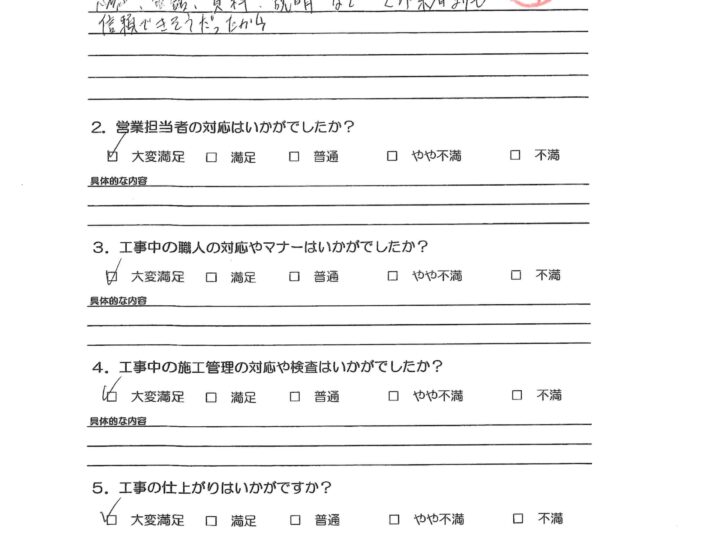 信頼できそうだったから
2. 営業担当者の対応はいかがでしたか?
☑ 大変満足 □ 満足 □ 普通 □ やや不満 □ 不満
具体的な内容
3. 工事中の職人の対応やマナーはいかがでしたか?
☑ 大変満足 □ 満足 □ 普通 □ やや不満 □ 不満
具体的な内容
4. 工事中の施工管理の対応や検査はいかがでしたか?
☑ 大変満足 □ 満足 □ 普通 □ やや不満 □ 不満
具体的な内容
5. 工事の仕上がりはいかがですか?
☑ 大変満足 □ 満足 □ 普通 □ やや不満 □ 不満